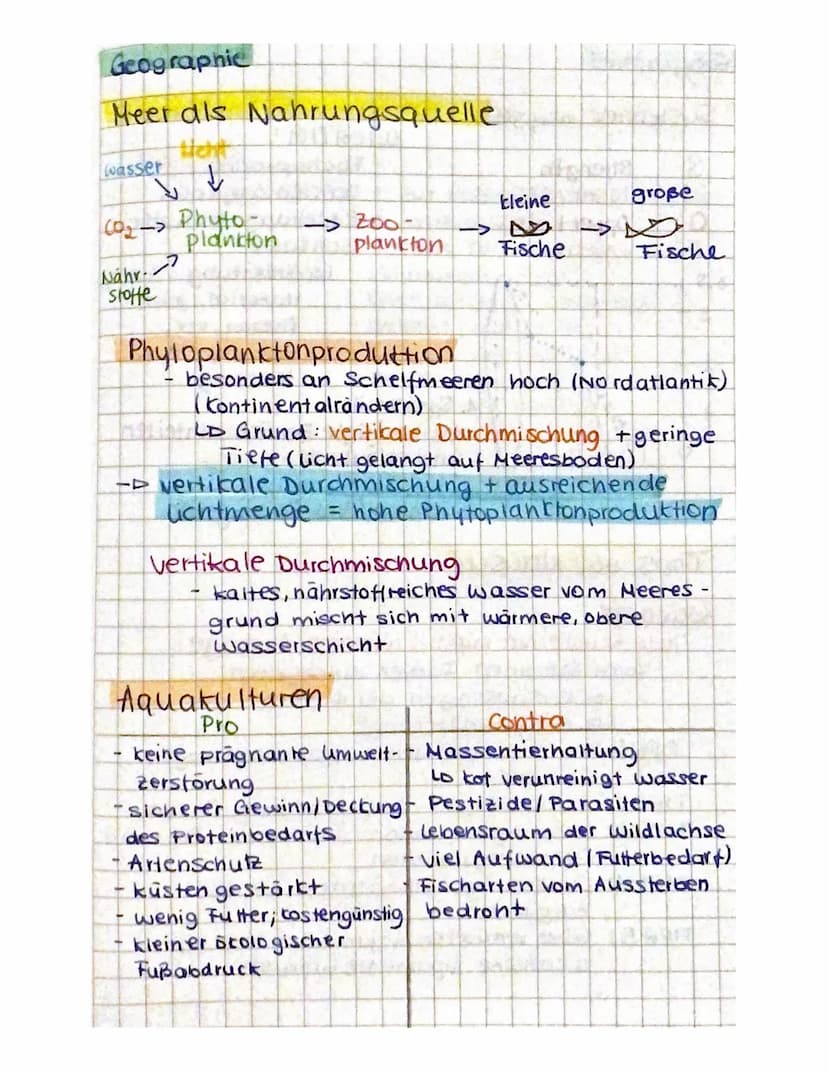 Geographie
Meer als Nahrungsquelle
Licht
Wasser
CO2 → Phyto- → Zoo- → kleine → große
plankton plankton Fische Fische
Nähr-
stoffe
Phytoplanktonproduktion
- besonders an Schelfmeeren hoch (Nordatlantik)
(Kontinentalrändern)
↳ Grund: vertikale Durchmischung + geringe
Tiefe (Licht gelangt auf Meeresboden)
→ vertikale Durchmischung + ausreichende
Lichtmenge = hohe Phytoplanktonproduktion
Vertikale Durchmischung
- kaltes, nährstoffreiches Wasser vom Meeres-
grund mischt sich mit wärmere, obere
Wasserschicht
Aquakulturen
Pro
- keine prägnante Umwelt-
zerstörung
- sicherer Gewinn/Deckung
des Proteinbedarfs
- Artenschutz
- Küsten gestärkt
- wenig Futter; kostengünstig
- kleiner ökologischer
Fußabdruck
Contra
- Massentierhaltung
↳ Kot verunreinigt Wasser
- Pestizide/Parasiten
- Lebensraum der Wildlachse
- viel Aufwand (Futterbedarf)
- Fischarten vom Aussterben
bedroht